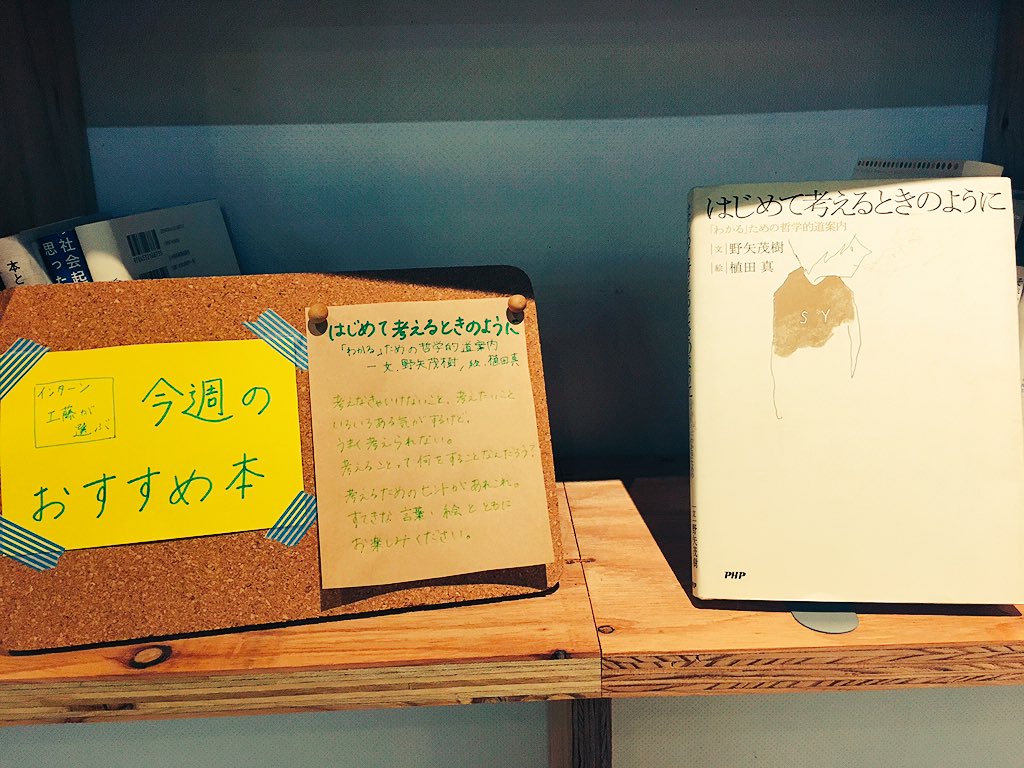 インターン
工藤が
選ぶ
今週の
おすすめ本
はじめて考えるときのように
「わかる」ための哲学的道案内
ー文.野矢茂樹/絵.植田真
考えなきゃいけないこと、考えたいこと
いろいろある気がするけど、
うまく考えられない。
考えることって何をすることなんだろう?
考えるためのヒントがあれこれ。
すてきな言葉・絵とともに
お楽しみください。
はじめて考えるときのように
「わかる」ための哲学的道案内
|文|野矢茂樹
|絵|植田 真
S Y
PHP
|文|野矢茂樹
本と
思った
社会起